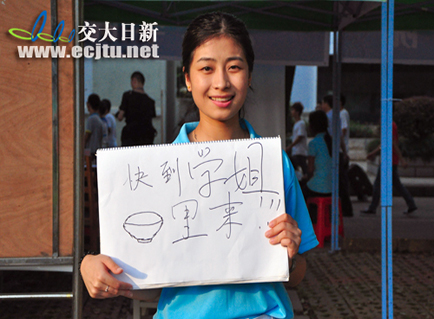 交大日新
www.ecjtu.net
快到学姐
里来!!!